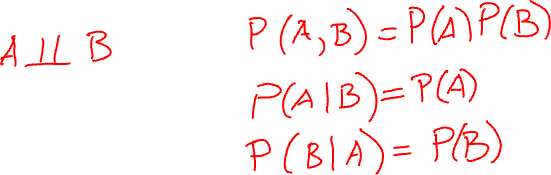 A ⫫ B
P(A,B)=P(A)P(B)
P(A|B)=P(A)
P(B|A)=P(B)